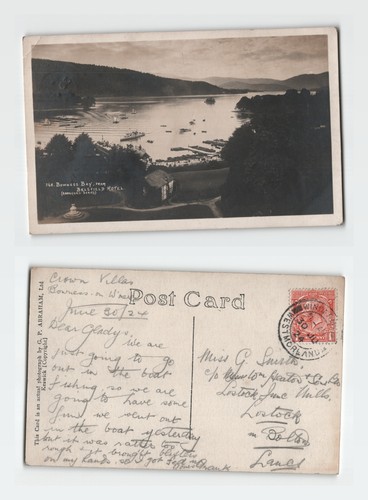 BOWNESS BAY, FROM
BELSFIELD HOTEL
Post Card
This Card is an actual photograph by G. P. ABRAHAM, Ltd
Keswick (Copyright)
Crown Villas
Bowness-on
June 30/24
Dear Gladys.
We are
just going to go
out in the boat
fishing, so we are
going to have some
fun we went out
in the boat yesterday
but it was rather
rough &
on my hands, so
Miss G. Smith
c/o
Lostock June Mills,
Lostock
Bolton
Lancs
WESTMORLAND